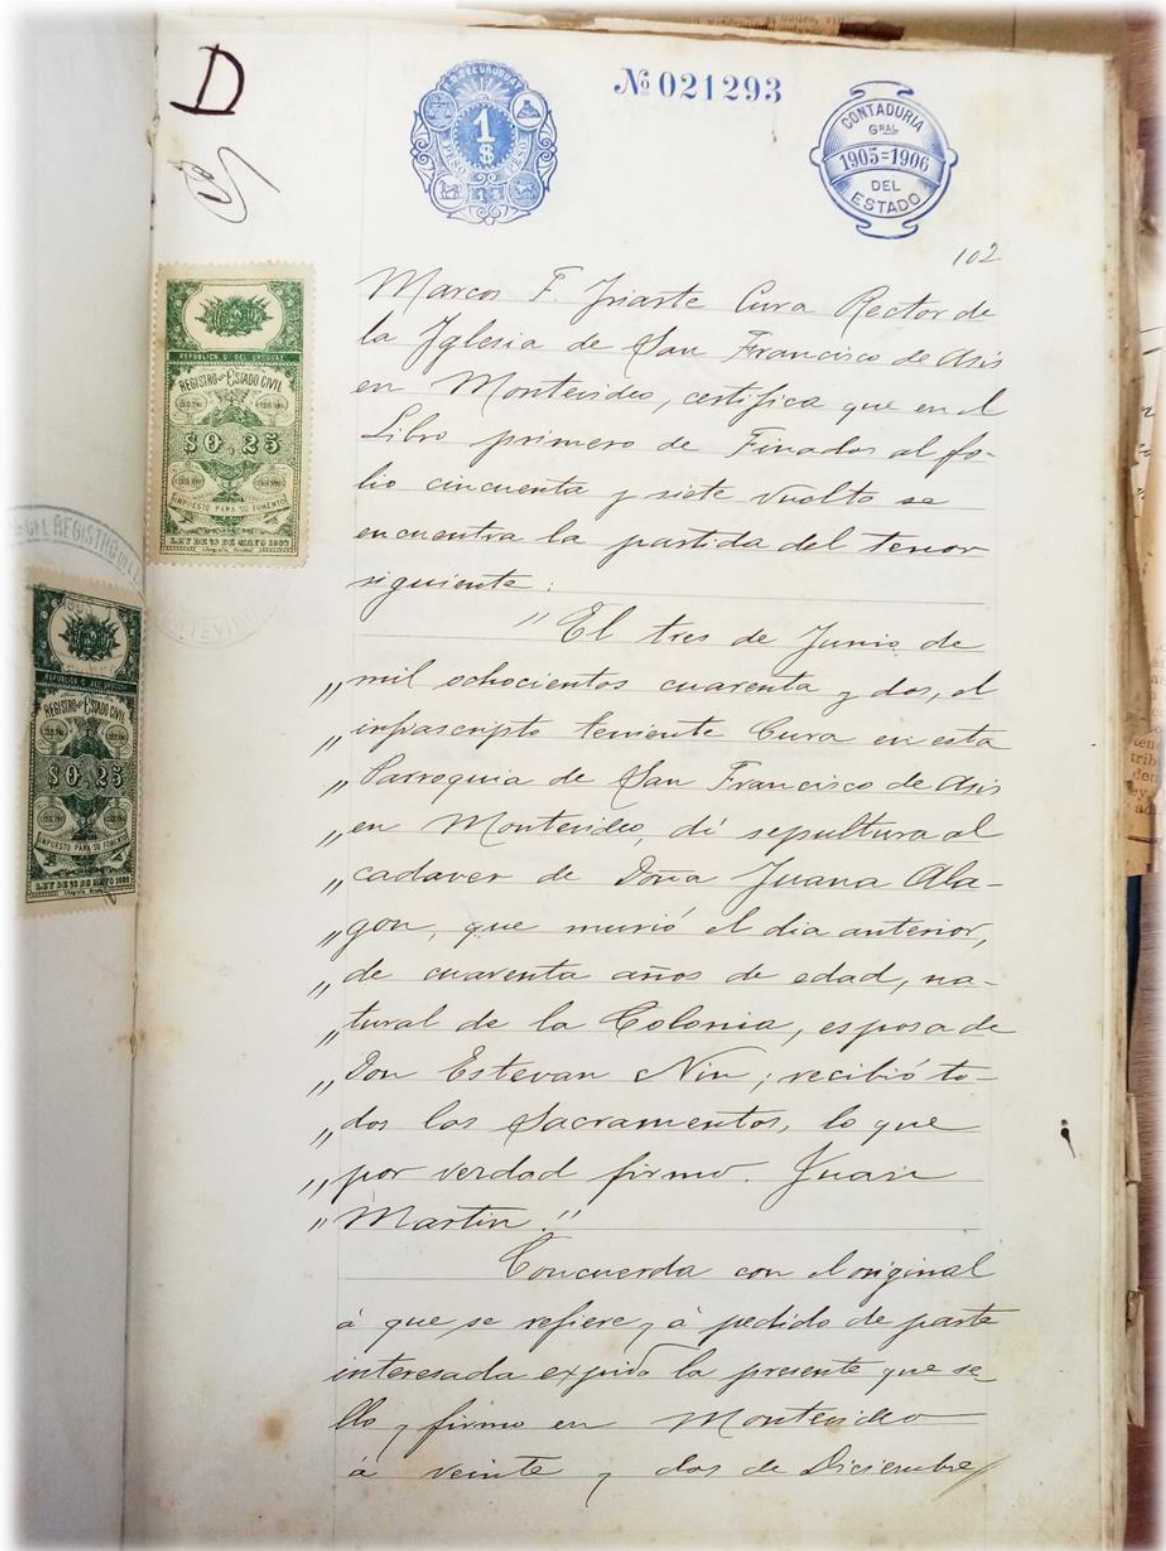 D
R.O. DEL URUGUAY
1
$
PESO PESO
Nº 021293
CONTADURIA
GRAL
1905=1906
DEL
ESTADO
102
REPUBLICA O. DEL URUGUAY
REGISTRO DEL ESTADO CIVIL
$0,25
IMPUESTO PARA SU FOMENTO
REPUBLICA O. DEL URUGUAY
REGISTRO DEL ESTADO CIVIL
$0,25
IMPUESTO PARA SU FOMENTO
Marcos F. Iriarte Cura Rector de
la Iglesia de San Francisco de Asis
en Montevideo, certifica que en el
Libro primero de Finados al fo-
lio cincuenta y siete vuelto se
encuentra la partida del tenor
siguiente:
"El tres de Junio de
"mil ochocientos cuarenta y dos, el
"infrascripto teniente Cura en esta
"Parroquia de San Francisco de Asis
"en Montevideo, dí sepultura al
"cadaver de Doña Juana Ala-
"gon, que murió el dia anterior,
"de cuarenta años de edad, na-
"tural de la Colonia, esposa de
"Don Estevan Nin; recibió to-
"dos los Sacramentos, lo que
"por verdad firmo. Juan
"Martin."
Concuerda con el original
á que se refiere y á pedido de parte
interesada expido la presente que se
llo y firmo en Montevideo
á veinte y dos de Diciembre